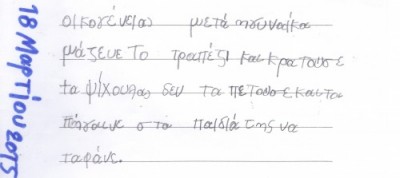 18 Μαρτίου 2015
οικογένεια) μετά η γυναίκα
μάζευε το τραπέζι και κρατουσε
τα ψίχουλα, δεν τα πετουσε και τα
πήγαινε στα παιδιά της να
τα φάνε.